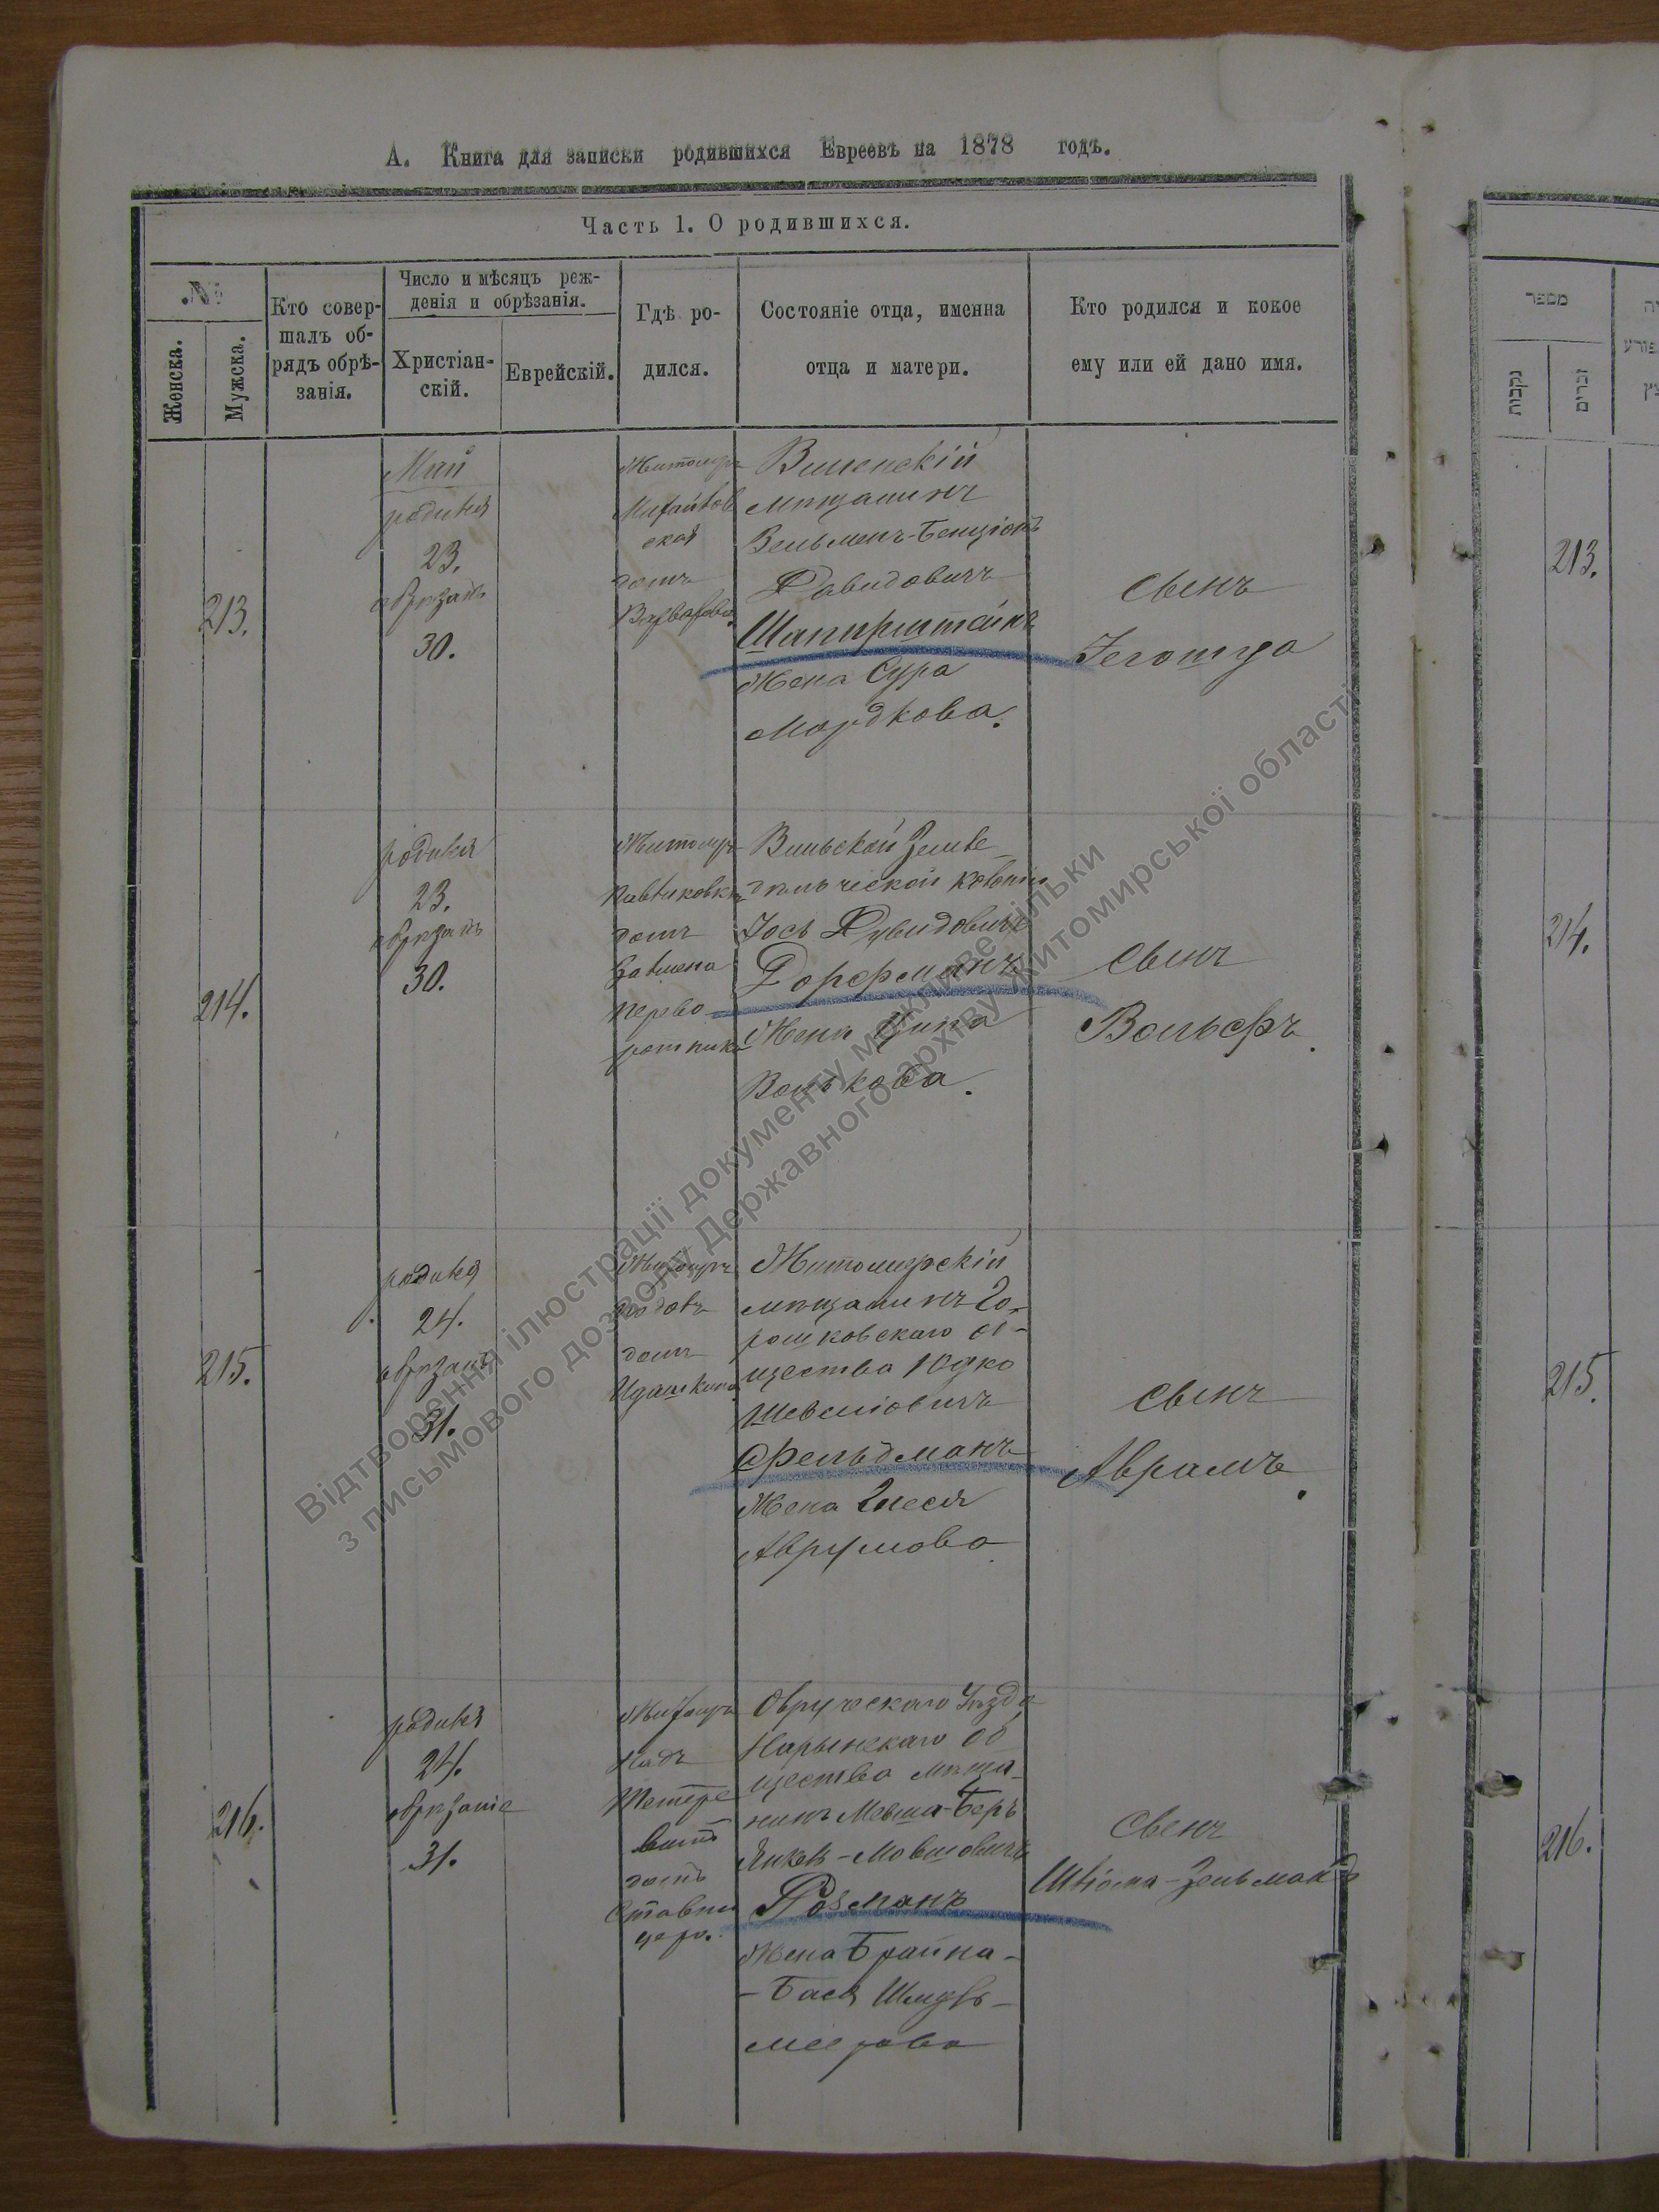 А. Книга для записки родившихся Евреевъ на 1878 годъ.
Часть 1. О родившихся.
№
Женска.
Мужска.
Кто совер-
шалъ об-
рядъ обрѣ-
занія.
Число и мѣсяцъ реж-
денія и обрѣзанія.
Христіан-
скій.
Еврейскій.
Гдѣ ро-
дился.
Состояніе отца, именна
отца и матери.
Кто родился и кокое
ему или ей дано имя.
213.
Май
родился
23.
обрѣзанъ
30.
Житомиръ
Михайлов
ская
домъ
Виленскій
мѣщанинъ
Зельменъ-Бенціонъ
Давидовичъ
Шапирштейнъ
Жена Сура
Мордкова.
Сынъ
Іегошуа
214.
родился
23.
обрѣзанъ
30.
Житомиръ
Павликовка
домъ
перево-
Вильской Земле-
дѣльческой Колоніи
Іось Дувидовичъ
Дорфманъ
Жена Ципа
Волькова.
Сынъ
Вольфъ.
215.
родился
24.
обрѣзанъ
31.
Житомиръ
домъ
Житомирскій
мѣщанинъ Го-
рошковскаго об-
щества Юдко
Шевелiовичъ
Фельдманъ
Жена Злеся
Аврумова
Сынъ
Аврамъ.
216.
родился
24.
обрѣзаніе
31.
Житомиръ
Надъ
Тетере
вомъ
домъ
Овручскаго Уѣзда
Нарынскаго Об
щества мѣща-
нинъ Мевша-Беръ
Янкель-Мовшовичъ
Розманъ
Жена Брайна-
-Бася Шмуль-
меерова
Сынъ
Шліома-Зельманъ
מספר
נקבות
זכרים
213.
214.
215.
216.
Відтворення ілюстрації документу можливе тільки
з письмового дозволу Державного архіву Житомирської області